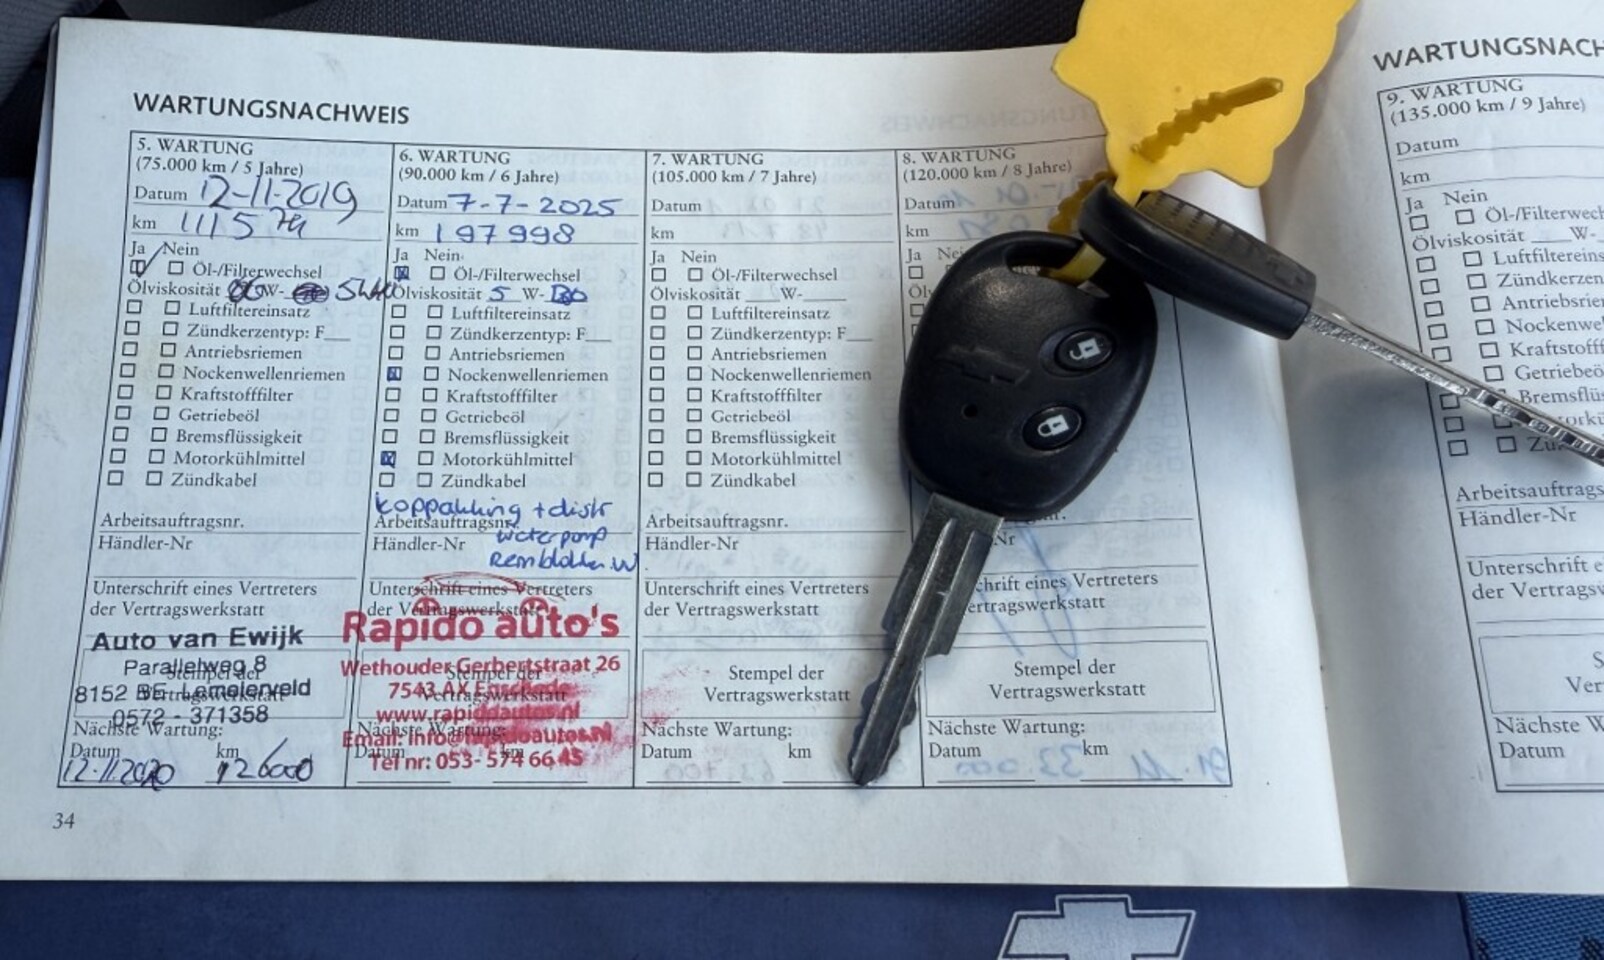 WARTUNGSNACHWEIS
5. WARTUNG
(75.000 km / 5 Jahre)
Datum 12-11-2019
km 111574
Ja Nein
Öl-/Filterwechsel
Ölviskosität W-
Luftfiltereinsatz
Zündkerzentyp: F__
Antriebsriemen
Nockenwellenriemen
Kraftstofffilter
Getriebeöl
Bremsflüssigkeit
Motorkühlmittel
Zündkabel
Arbeitsauftragsnr.
Händler-Nr
Unterschrift eines Vertreters
der Vertragswerkstatt
Auto van Ewijk
Parallelweg 8
Stempel der
8152 BE Lemelerveld
Vertragswerkstatt
0572 - 371358
Nächste Wartung:
Datum km
12-11.2020 126000
6. WARTUNG
(90.000 km / 6 Jahre)
Datum 7-7-2025
km 197998
Ja Nein
Öl-/Filterwechsel
Ölviskosität 5 W-
Luftfiltereinsatz
Zündkerzentyp: F__
Antriebsriemen
Nockenwellenriemen
Kraftstofffilter
Getriebeöl
Bremsflüssigkeit
Motorkühlmittel
Zündkabel
koppakking + distr
Arbeitsauftragsnr.
waterpomp
Händler-Nr
Remblokken
Unterschrift eines Vertreters
der Vertragswerkstatt
Rapido auto's
Wethouder Gerbertstraat 26
Stempel der
7543 AX Enschede
Vertragswerkstatt
www.rapidoautos.nl
Nächste Wartung:
Email: info@rapidoautos.nl
Datum km
Tel nr: 053- 574 66 45
7. WARTUNG
(105.000 km / 7 Jahre)
Datum
km
Ja Nein
Öl-/Filterwechsel
Ölviskosität ___W-____
Luftfiltereinsatz
Zündkerzentyp: F__
Antriebsriemen
Nockenwellenriemen
Kraftstofffilter
Getriebeöl
Bremsflüssigkeit
Motorkühlmittel
Zündkabel
Arbeitsauftragsnr.
Händler-Nr
Unterschrift eines Vertreters
der Vertragswerkstatt
Stempel der
Vertragswerkstatt
Nächste Wartung:
Datum km
8. WARTUNG
(120.000 km / 8 Jahre)
Datum
km
Ja
Nr
chrift eines Vertreters
ertragswerkstatt
Stempel der
Vertragswerkstatt
Nächste Wartung:
Datum km
34
WARTUNGSNACH
9. WARTUNG
(135.000 km / 9 Jahre)
Datum
km
Ja Nein
Öl-/Filterwech
Ölviskosität ___W-
Luftfiltereins
Zündkerzen
Antriebsrie
Nockenwe
Kraftstofff
Getriebeö
Bremsflüs
Arbeitsauftrags
Händler-Nr
Unterschrift e
der Vertragsw
S
Ver
Nächste Wartu
Datum